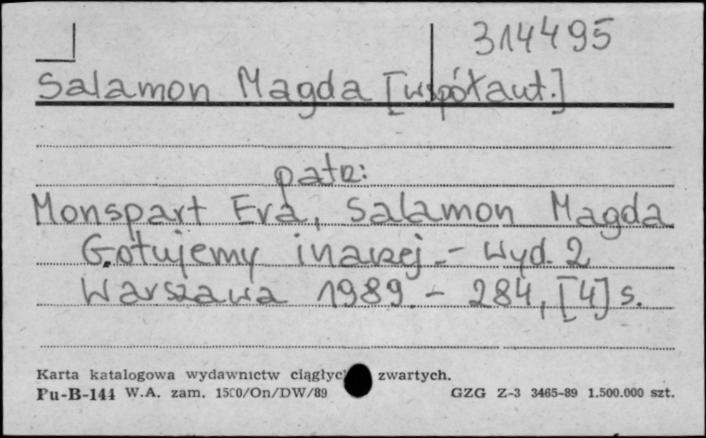 314495
Salamon Magda [współaut.]
patrz:
Monspart Eva, Salamon Magda
Gotujemy inaczej. - Wyd. 2
Warszawa 1989. - 284, [4] s.
Karta katalogowa wydawnictw ciągłyc zwartych.
Pu-B-144 W.A. zam. 1500/On/DW/89 GZG Z-3 3465-89 1.500.000 szt.